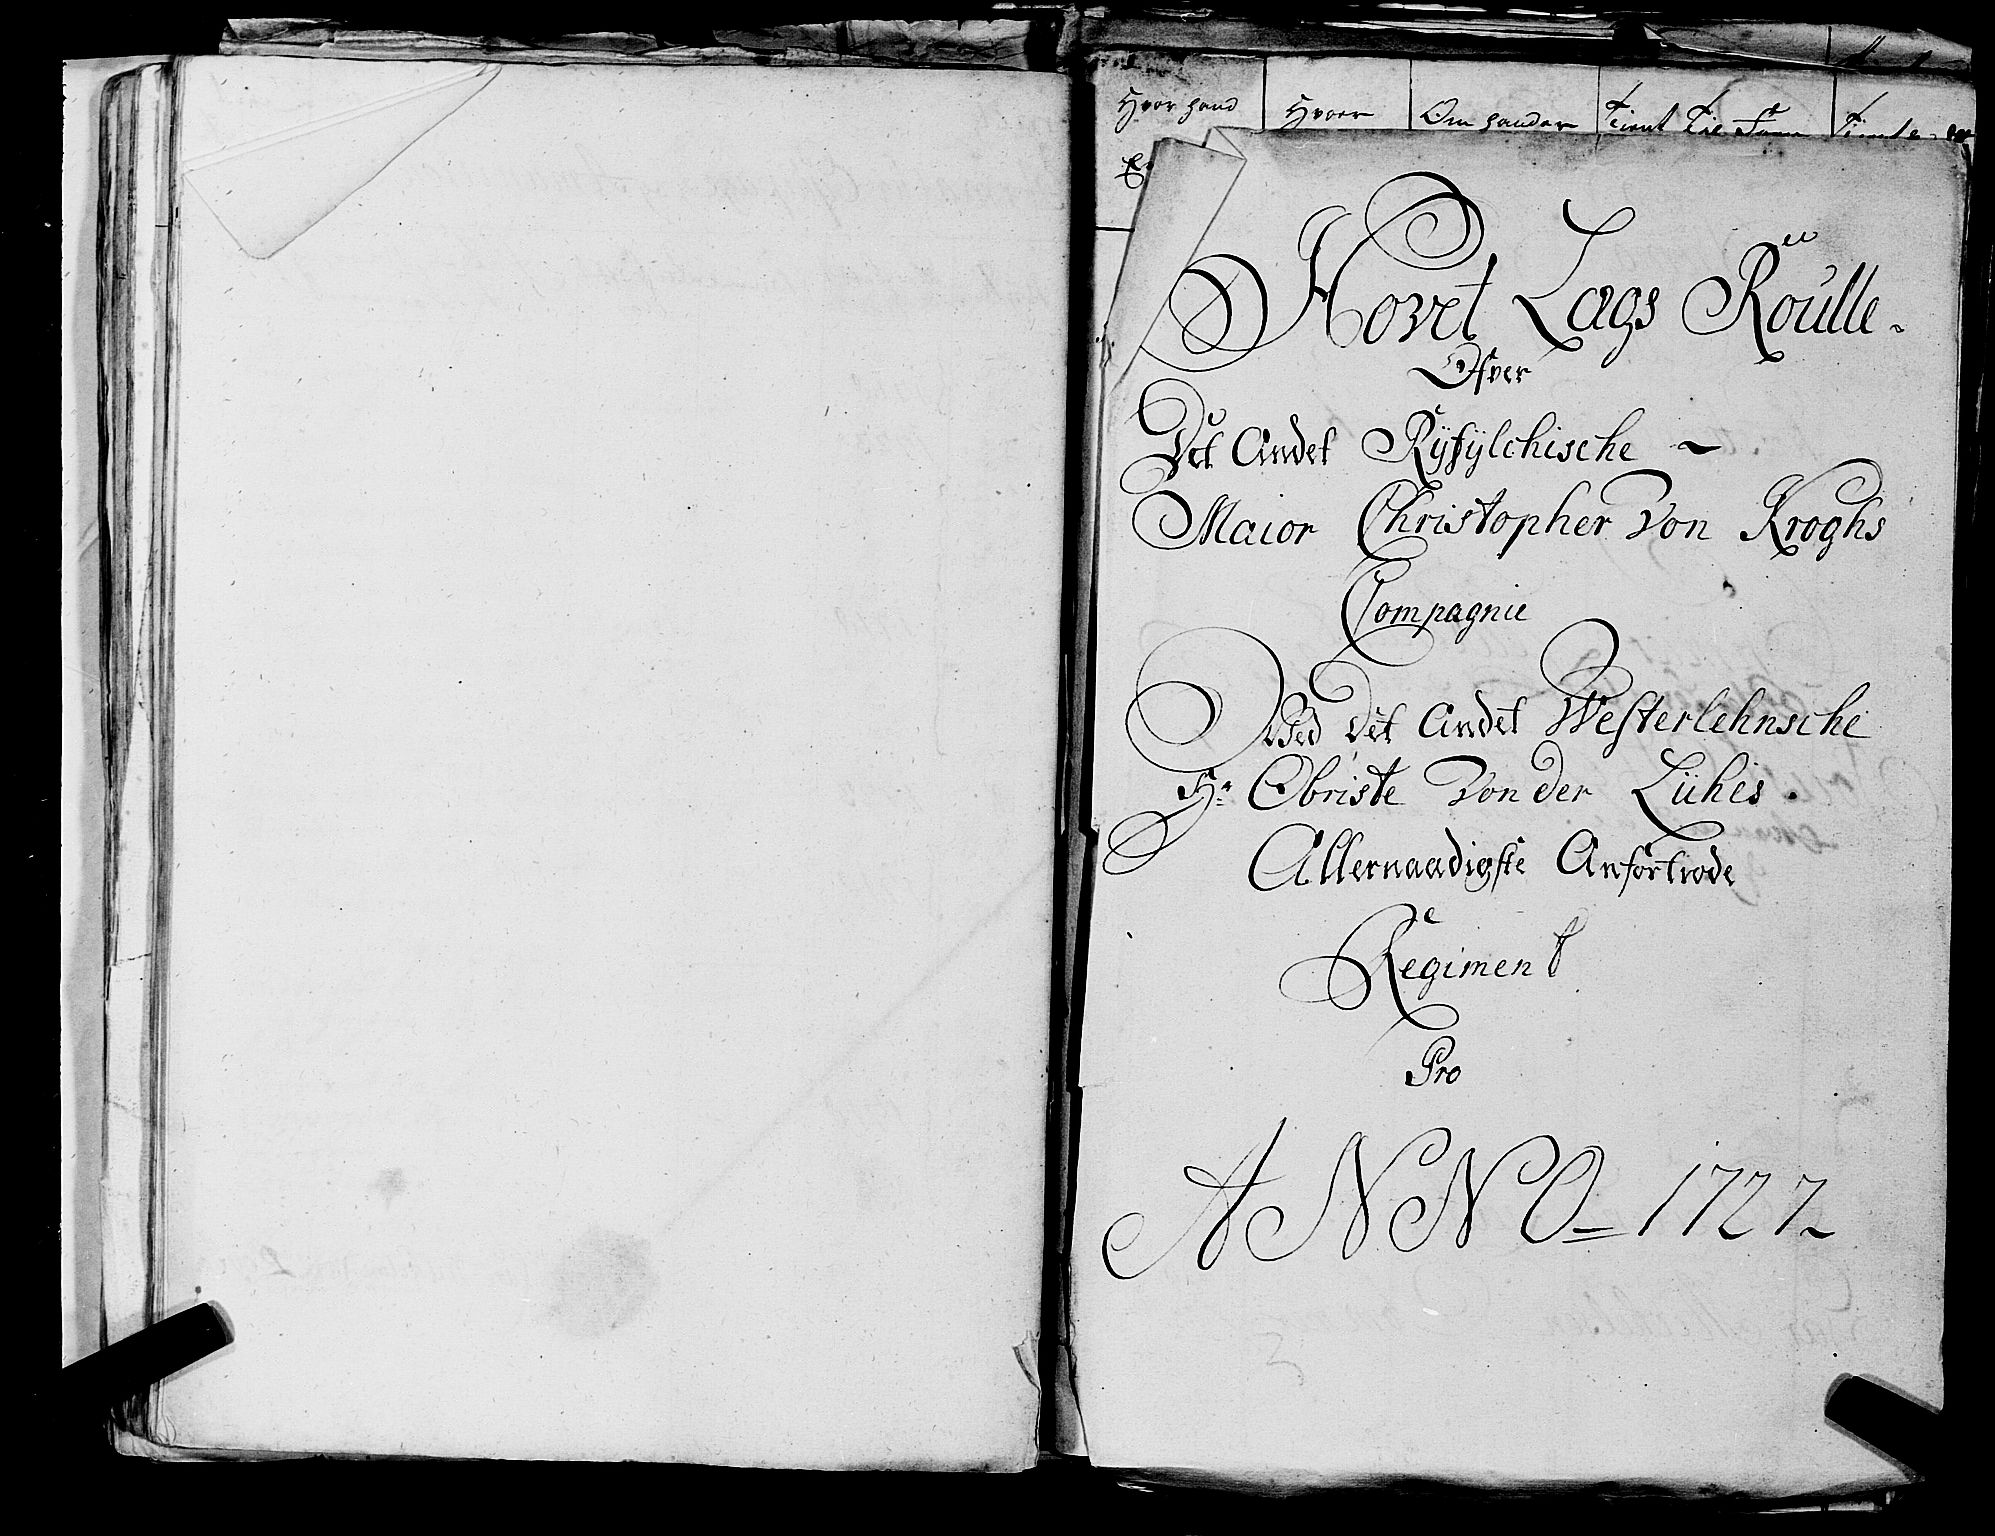 Hvor hand Hvor Om handar Tient Til Forn Tient
Hovet Lags Roulle.
Ofver
Det Andet Ryfylchische
Maior Christopher Von Kroghs
Compagnie
Ved Det Andet Westerlehnsche
Hr. Obriste Von der Lühes.
Allernaadigste Anfortrode
Regiment
Pro
ANNO 1727